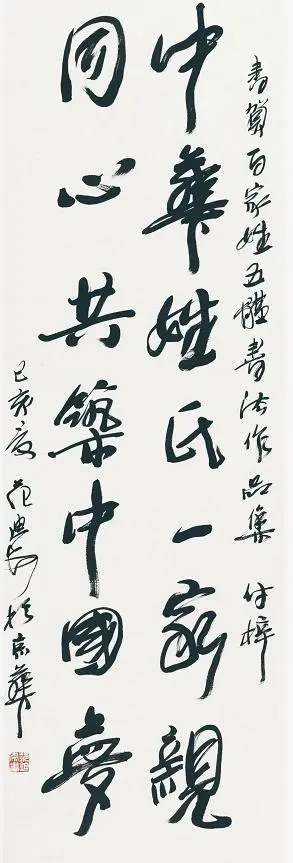 書賀百家姓五體書法作品集 付梓
中華姓氏一家親
同心共築中國夢
己亥夏 范迪安 於京華